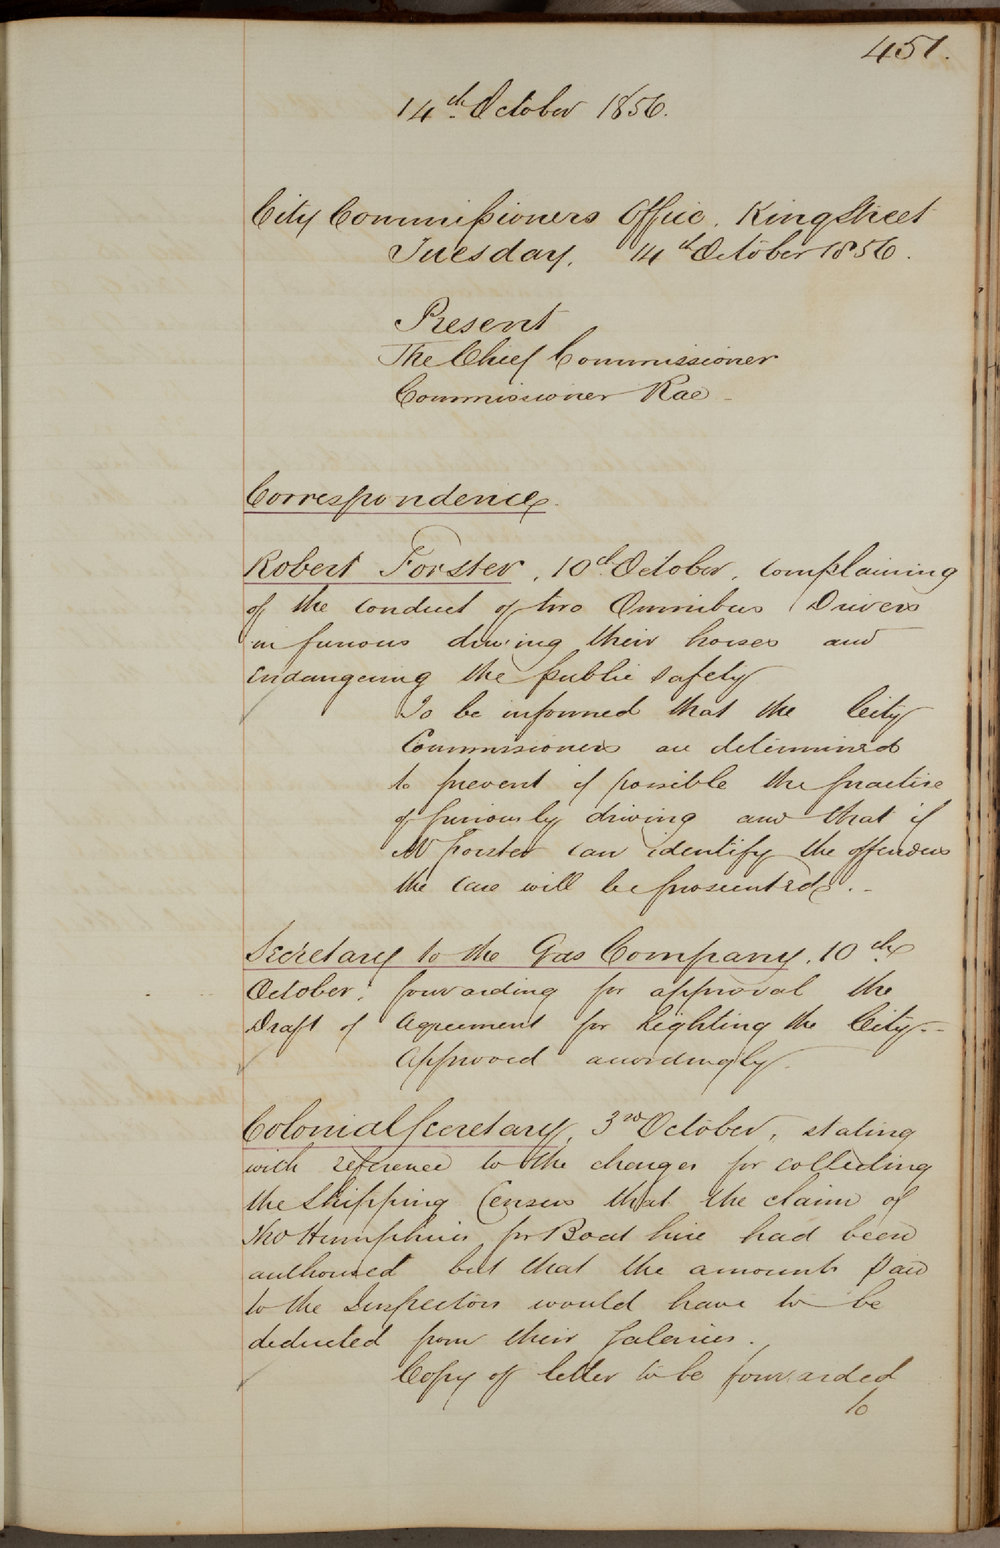 451.
14th October 1856.
City Commissioners Office, King Street
Tuesday, 14th October 1856.
Present
The Chief Commissioner
Commissioner Rae
Correspondence.
Robert Forster, 10th October, complaining
of the conduct of two Omnibus Drivers
in furious driving their horses and
endangering the public safety
To be informed that the City
Commissioners are determined
to prevent if possible the practise
of furiously driving and that if
Mr Forster can identify the offenders
the case will be prosecuted.
Secretary to the Gas Company, 10th
October, forwarding for approval the
Draft of Agreement for Lighting the City.
Approved accordingly.
Colonial Secretary, 3rd October, stating
with reference to the charges for collecting
the Shipping Census that the claim of
Humphries for Boat hire had been
authorised but that the amounts paid
to the Inspectors would have to be
deducted from their Salaries.
Copy of letter to be forwarded
to